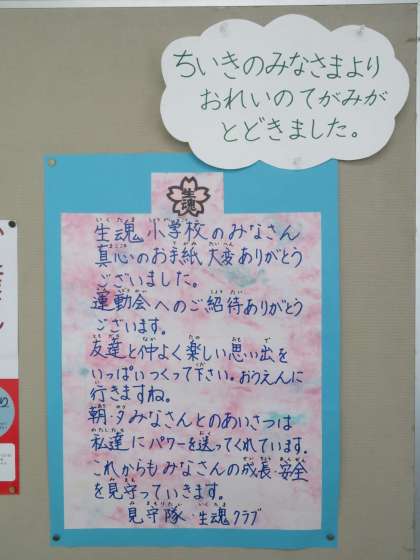 ちいきのみなさまより
おれいのてがみが
とどきました。
生魂
生魂小学校のみなさん
真心のお手紙大変ありがとう
ございました。
運動会へのご招待ありがとう
ございます。
友達と仲よく楽しい思い出を
いっぱいつくって下さい。おうえんに
行きますね。
朝・夕みなさんとのあいさつは
私達にパワーを送ってくれています。
これからもみなさんの成長・安全
を見守っていきます。
見守隊・生魂クラブ